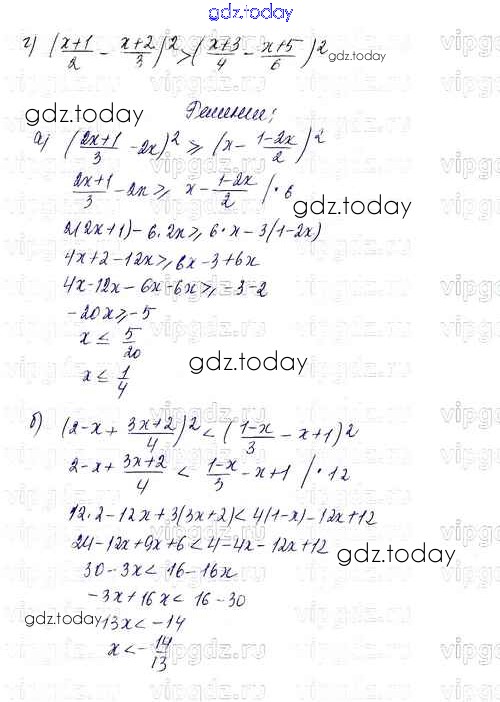 gdz.today
г) (x+1/2 - x+2/3)² > (x+3/4 - x+5/6)²
gdz.today
Решение:
а) (2x+1/3 - 2x)² ≥ (x - 1-2x/2)²
gdz.today
2x+1/3 - 2x ≥ x - 1-2x/2 | · 6
gdz.today
2(2x+1) - 6·2x ≥ 6·x - 3(1-2x)
4x+2-12x ≥ 6x-3+6x
4x-12x-6x-6x ≥ -3-2
-20x ≥ -5
x ≤ 5/20
gdz.today
x ≤ 1/4
б) (2-x + 3x+2/4)² < (1-x/3 - x+1)²
gdz.today
2-x + 3x+2/4 < 1-x/3 - x+1 | · 12
12·2-12x+3(3x+2) < 4(1-x)-12x+12
24-12x+9x+6 < 4-4x-12x+12
gdz.today
30-3x < 16-16x
-3x+16x < 16-30
gdz.today
13x < -14
x < -14/13